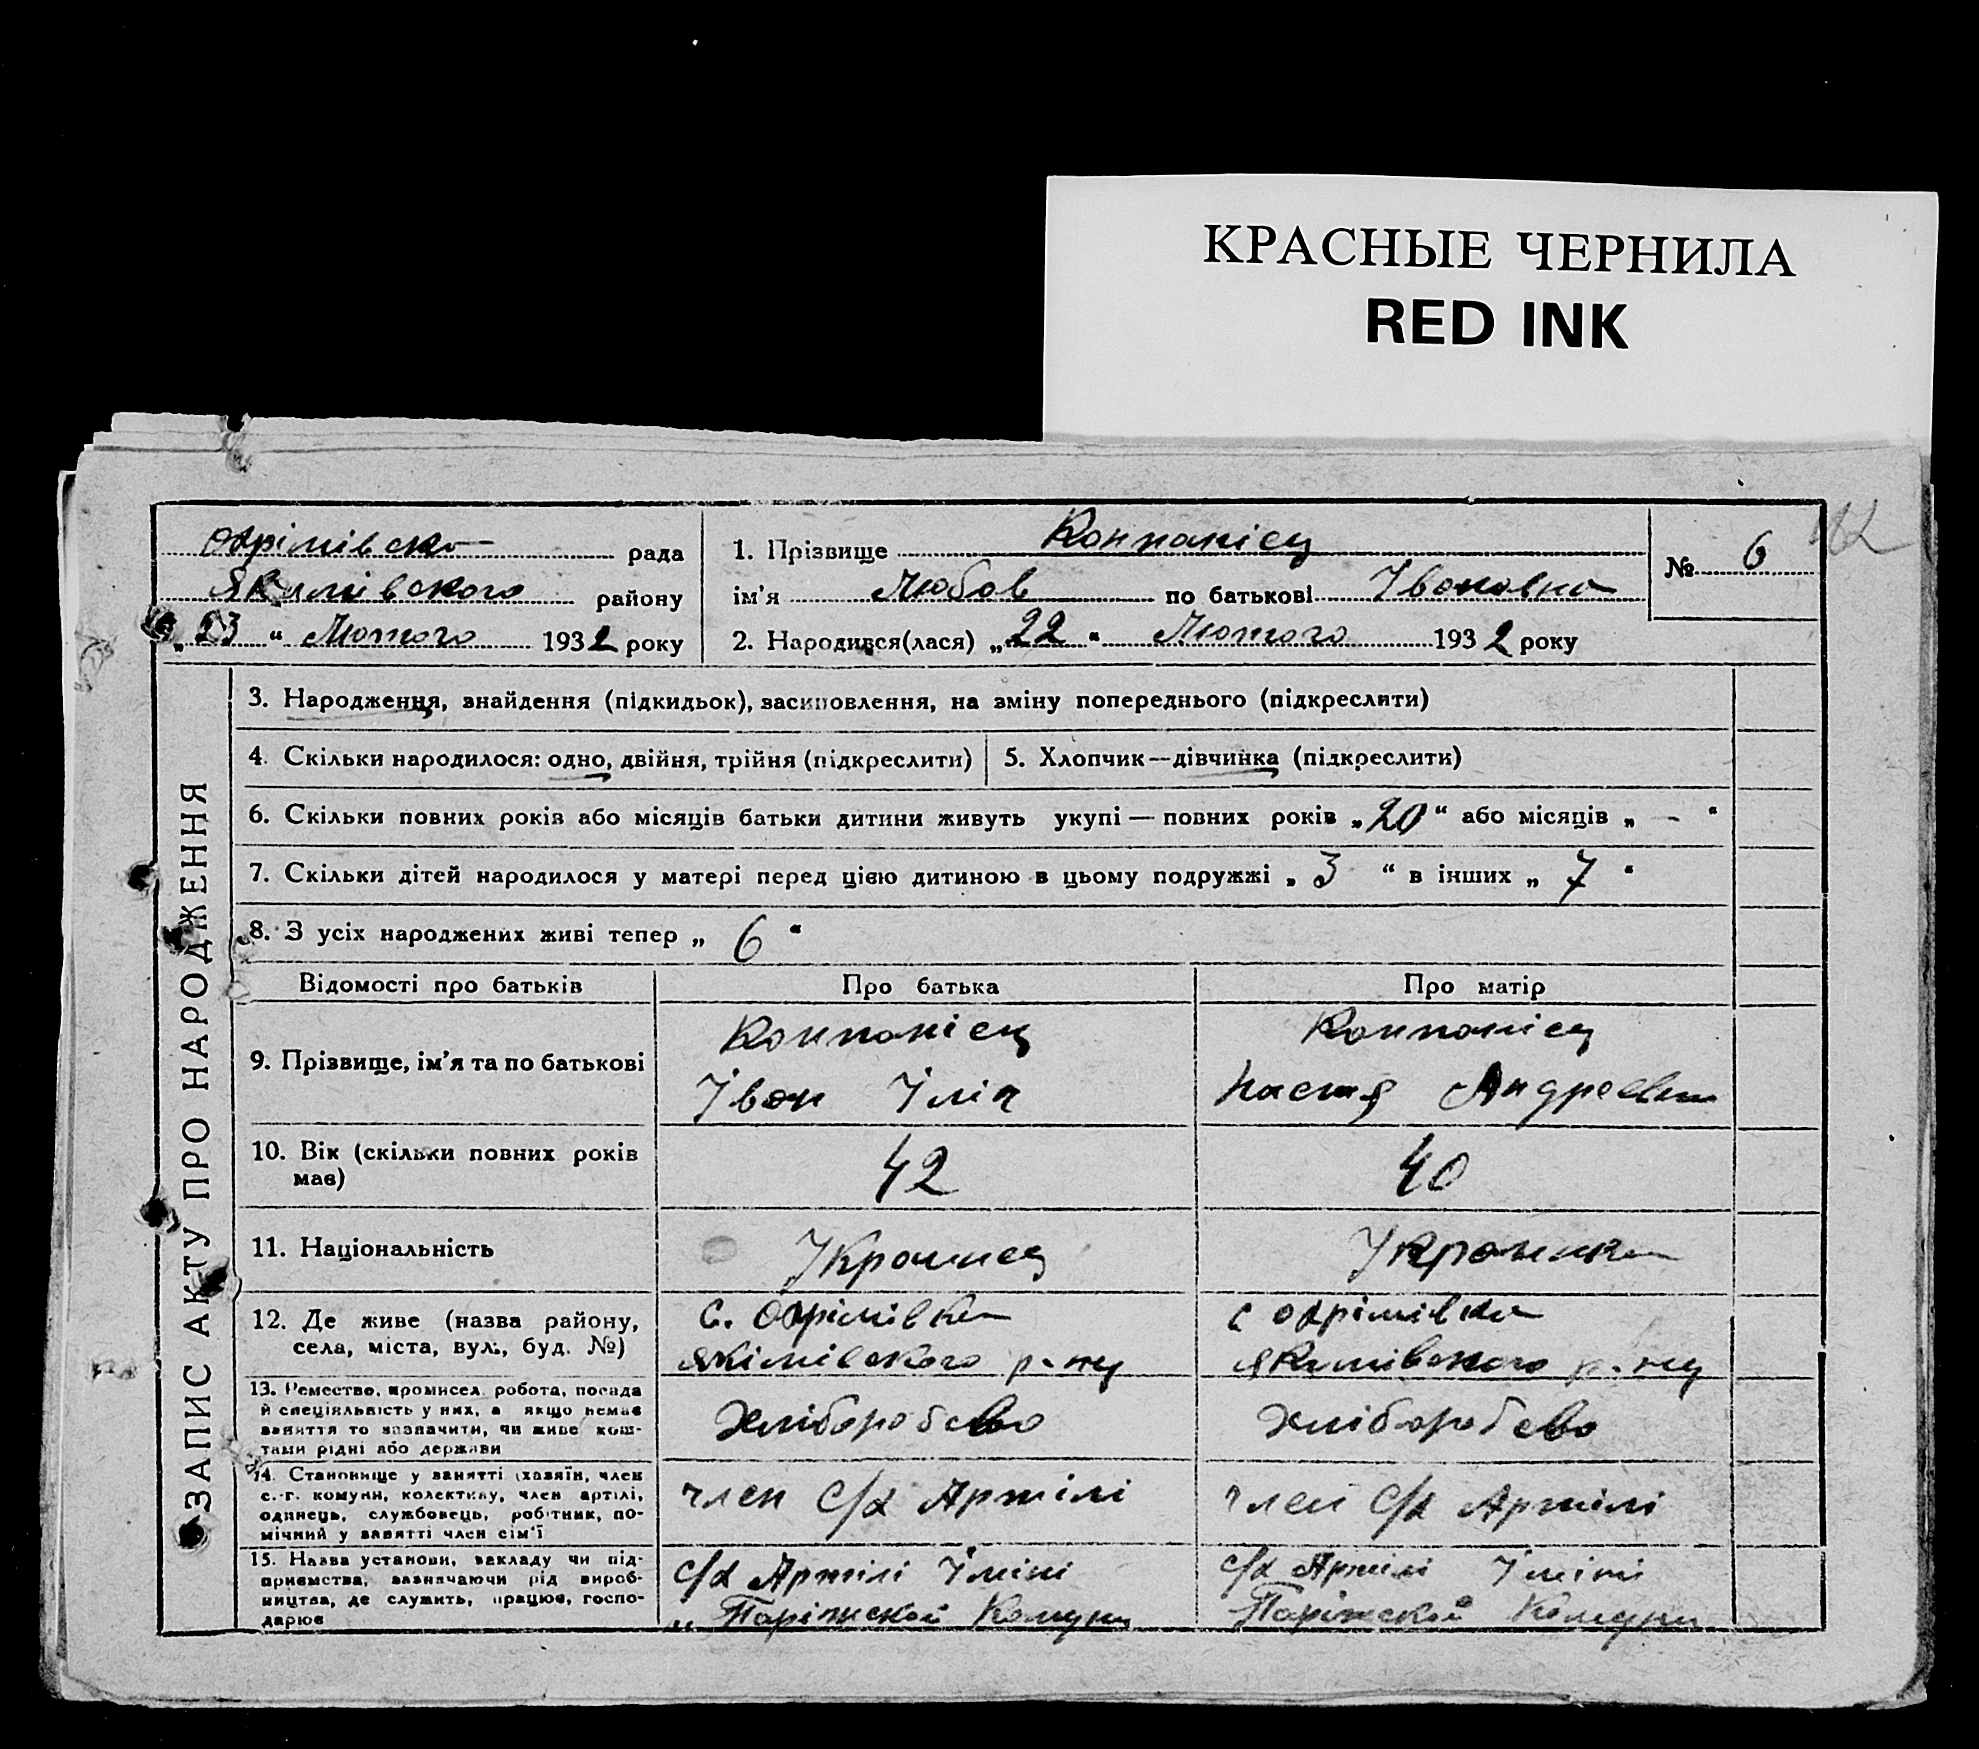 КРАСНЫЕ ЧЕРНИЛА
RED INK
Охрімівська рада
Якимівського району
„23“ Лютого 1932 року
1. Прізвище Компаніец
ім'я Любов по батькові Івановна
№ 6
2. Народився(лася) „22“ Лютого 1932 року
ЗАПИС АКТУ ПРО НАРОДЖЕННЯ
3. Народження, знайдення (підкидьок), засиновлення, на зміну попереднього (підкреслити)
4. Скільки народилося: одно, двійня, трійня (підкреслити)
5. Хлопчик—дівчинка (підкреслити)
6. Скільки повних років або місяців батьки дитини живуть укупі — повних років „20“ або місяців „ - “
7. Скільки дітей народилося у матері перед цією дитиною в цьому подружжі „ 3 “ в інших „ 7 “
8. З усіх народжених живі тепер „ 6 “
Відомості про батьків
Про батька
Про матір
9. Прізвище, ім'я та по батькові
Компаніец
Іван Ілін
Компаніец
Настя Андреевна
10. Вік (скільки повних років
має)
42
40
11. Національність
Украинец
Украинка
12. Де живе (назва району,
села, міста, вул., буд. №)
с. Охрімівка
Якімівського р-ну
с Охрімівка
Якимівського р-ну
13. Ремество, промисел, робота, посада
й спеціяльність у них, а якщо немає
заняття то зазначити, чи живе кош-
тами рідні або держави
Хліборобство
Хліборобство
14. Становище у занятті (хазяїн, член
с.-г. комуни, колективу, член артілі,
одинець, службовець, робітник, по-
мічний у занятті член сім'ї
член С/г Артілі
член С/г Артілі
15. Назва установи, закладу чи під-
приємства, зазначаючи рід вироб-
ництва, де служить, працює, госпо-
дарює
С/г Артілі Іміні
„ Паріжской Комуни
С/г Артілі Іміні
Паріжской Комуни